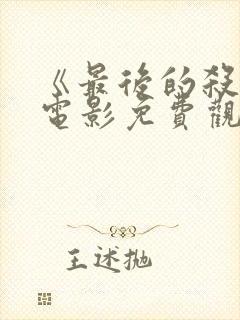 《最後的殺
電影免費觀
王述抛